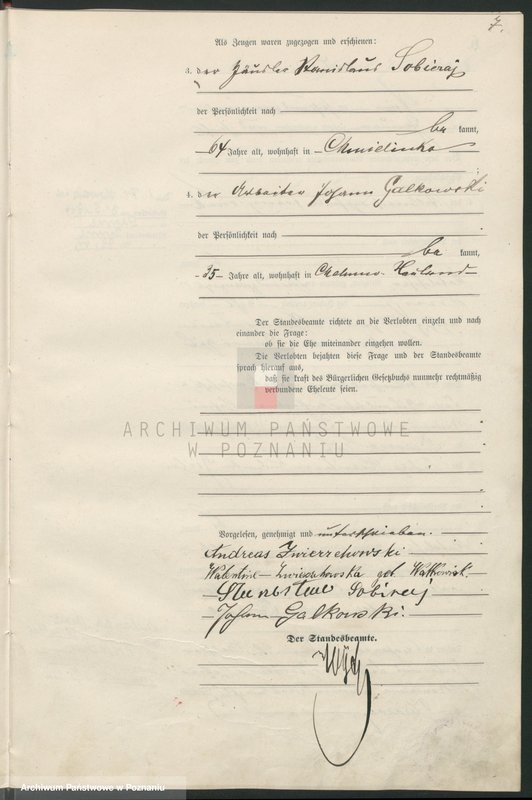 7.
Als Zeugen waren zugezogen und erschienen:
3. der Häusler Stanislaus Sobieraj
der Persönlichkeit nach
be kannt,
64 Jahre alt, wohnhaft in Chmielinko
4. der Arbeiter Johann Galkowski
der Persönlichkeit nach
be kannt,
35 Jahre alt, wohnhaft in Hauland
Der Standesbeamte richtete an die Verlobten einzeln und nach
einander die Frage:
ob sie die Ehe miteinander eingehen wollen.
Die Verlobten bejahten diese Frage und der Standesbeamte
sprach hierauf aus,
daß sie kraft des Bürgerlichen Gesetzbuchs nunmehr rechtmäßig
verbundene Eheleute seien.
ARCHIWUM PAŃSTWOWE
W POZNANIU
Vorgelesen, genehmigt und unterschrieben.
Andreas Zwierzchowski
Walentine Zwierzchowska geb. Walkowiak
Sobieraj
Johann Galkowski.
Der Standesbeamte.
Archiwum Państwowe w Poznaniu